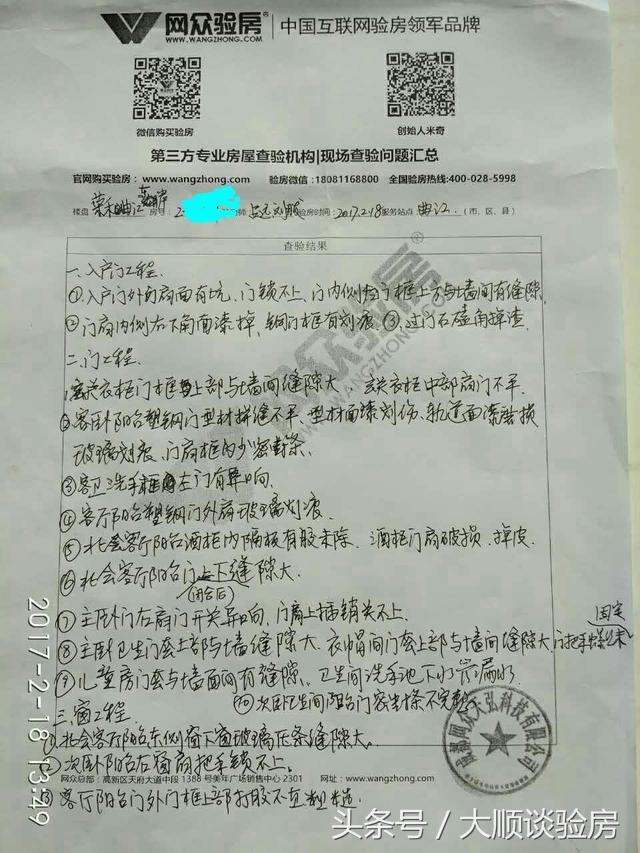 网众验房® 中国互联网验房领军品牌
WWW.WANGZHONG.COM
微信购买验房 创始人米奇
第三方专业房屋查验机构|现场查验问题汇总
官网购买验房:www.wangzhong.com 验房微信:18081168800 全国验房热线:400-028-5998
楼盘 荣和曲江 房号: 2- 师 验房时间: 2017.2.18 服务站点: 曲江 (市、区、县)
查验结果
一.入户门工程.
①入户门外向扇面有坑、门锁不上、门内侧 门框上方与墙间有缝隙
②门扇内侧右下角面漆掉、钢门框有划痕 ③、过门石磕角掉渣
二.门工程.
玄关衣柜门框 上部与墙间缝隙大 玄关衣柜中部扇门不平.
②客卧阳台塑钢门型材拼缝不平、型材面漆划伤、轨道面漆磨损
玻璃划痕、门扇框内少密封条.
③客卫洗手柜 左门有异响.
④客厅阳台塑钢门外扇玻璃划痕
⑤北会客厅阳台酒柜内隔板有胶未除. 酒柜门扇破损、掉皮
⑥北会客厅阳台门上下缝隙大.
(闭合后)
⑦主卧门右扇门开关异响、门扇上插销关不上. 固定
⑧主卧卫生门套上部与墙缝隙大、衣帽间门套上部与墙间缝隙大、门把手
⑨儿童房门套与墙面间有缝隙. 卫生间洗手池下水 漏水
⑩次卧卫生间阳台门密封条不完整
三.窗工程.
①北会客厅阳台东侧窗下窗玻璃压条缝隙大.
②次卧阳台右窗扇把手锁不上.
网众总部:高新区天府大道中段1388号美年广场销售中心2301 网址:www.wangzhong.com
③客厅阳台门外门框上部打胶不
网众验房®
WWW.WANGZHONG.COM
成都网众天弘科技有限公司
2017-2-18 13:49
头条号 / 大顺谈验房